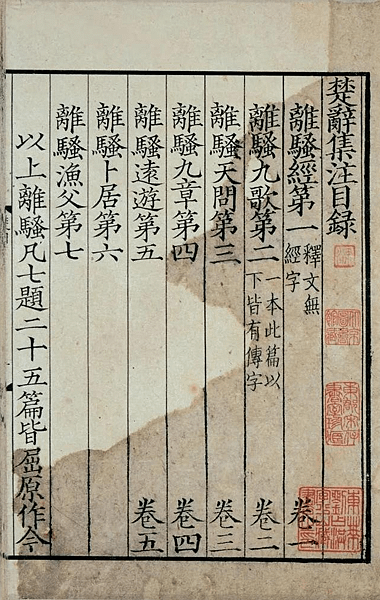 楚辭集注目錄
離騷經第一 釋文無經字 卷一
離騷九歌第二 一本此篇以下皆有傳字 卷二
離騷天問第三 卷三
離騷九章第四 卷四
離騷遠遊第五 卷五
離騷卜居第六
離騷漁父第七
以上離騷凡七題二十五篇皆屈原作今